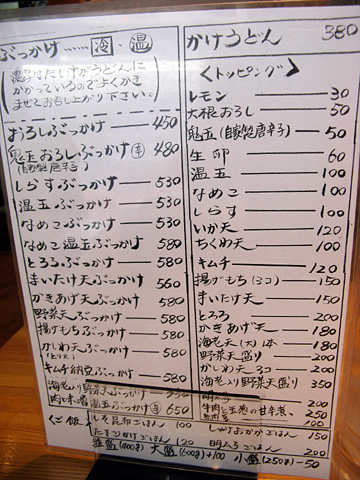 ぶっかけ……冷・温
濃厚なだしけがうどんに
かかっているのでよくかき
まぜてお召し上り下さい。
おろしぶっかけ — 450
鬼玉おろしぶっかけ 辛 480
(自製唐辛子)
しらすぶっかけ — 530
温玉ぶっかけ — 530
なめこぶっかけ — 530
なめこ温玉ぶっかけ — 580
とろろぶっかけ — 580
まいたけ天ぶっかけ — 560
かきあげ天ぶっかけ — 560
野菜天ぶっかけ — 580
揚げもちぶっかけ — 580
かしわ天ぶっかけ — 580
(とり天)
キムチ納豆ぶっかけ — 580
海老入り野菜天ぶっかけ 730
肉味噌温玉ぶっかけ 辛 650
かけうどん 380
<トッピング>
レモン — 30
大根おろし — 50
鬼玉(自製唐辛子) — 50
生卵 60
温玉 — 100
なめこ — 100
しらす — 100
いか天 — 120
ちくわ天 — 100
キムチ — 120
揚げもち(2コ) — 150
まいたけ天 — 150
とろろ — 200
かきあげ天 — 180
海老天(大)1本 — 180
野菜天盛り — 200
かしわ天3コ — 200
海老入り野菜天盛り 350
200
牛肉と玉葱の甘辛煮 250
100
<ご飯
しそ昆布ごはん 100
しゃけおかかごはん 150
たまごかけごはん 120
明太子ごはん 200
並盛(400g) 大盛(600g)+100 小盛(250g)-50